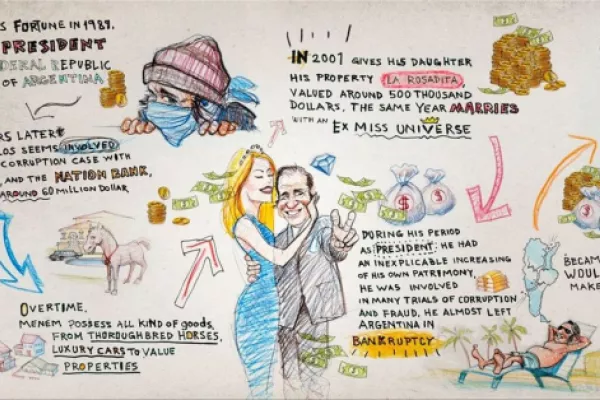 S FORTUNE IN 1989.
PRESIDENT
DERAL REPUBLIC
OF ARGENTINA
RS LATER
LOS SEEMS INVOLVED
CORRUPTION CASE WITH
AND THE NATION BANK,
AROUND 60 MILLION DOLLAR
OVERTIME,
MENEM POSSESS ALL KIND OF goods,
FROM THOROUGHBRED HORSES,
LUXURY CARS TO VALUE
PROPERTIES
IN 2001 GIVES HIS DAUGHTER
HIS PROPERTY LA ROSADITA,
VALUED AROUND 500 THOUSAND
DOLLARS, THE SAME YEAR MARRIES
WITH AN EX MISS UNIVERSE
DURING HIS PERIOD
AS PRESIDENT: HE HAD
AN INEXPLICABLE INCREASING
OF HIS OWN PATRIMONY,
HE WAS INVOLVED
IN MANY TRIALS OF CORRUPTION
AND FRAUD, HE ALMOST LEFT
ARGENTINA IN
BANKRUPTCY
BECAM
WOUL
MAKE